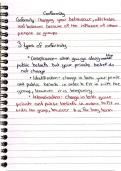 Conformity
Conformity: Changing your behaviour, attitudes,
and because of the influence of other
people or groups
3 types of conformity
• Compliance - when going along with
public beliefs but your private belief do
not change
• Identification: change in both your private
and public beliefs in order to fit in with the
group, however it is temporary.
• Internalisation: change in both your
private and public beliefs in order to fit in
with the group, however it is for long term